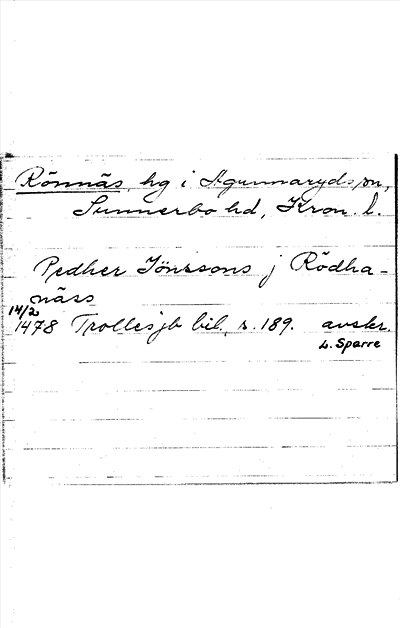 Rönnäs, hg i Agunnaryds sn,
Sunnerbo hd, Kron. l.
Pedher Jönssons j Rödha-
näss
14/2
1478 Trolles jb bil, s. 189. avskr.
L. Sparre